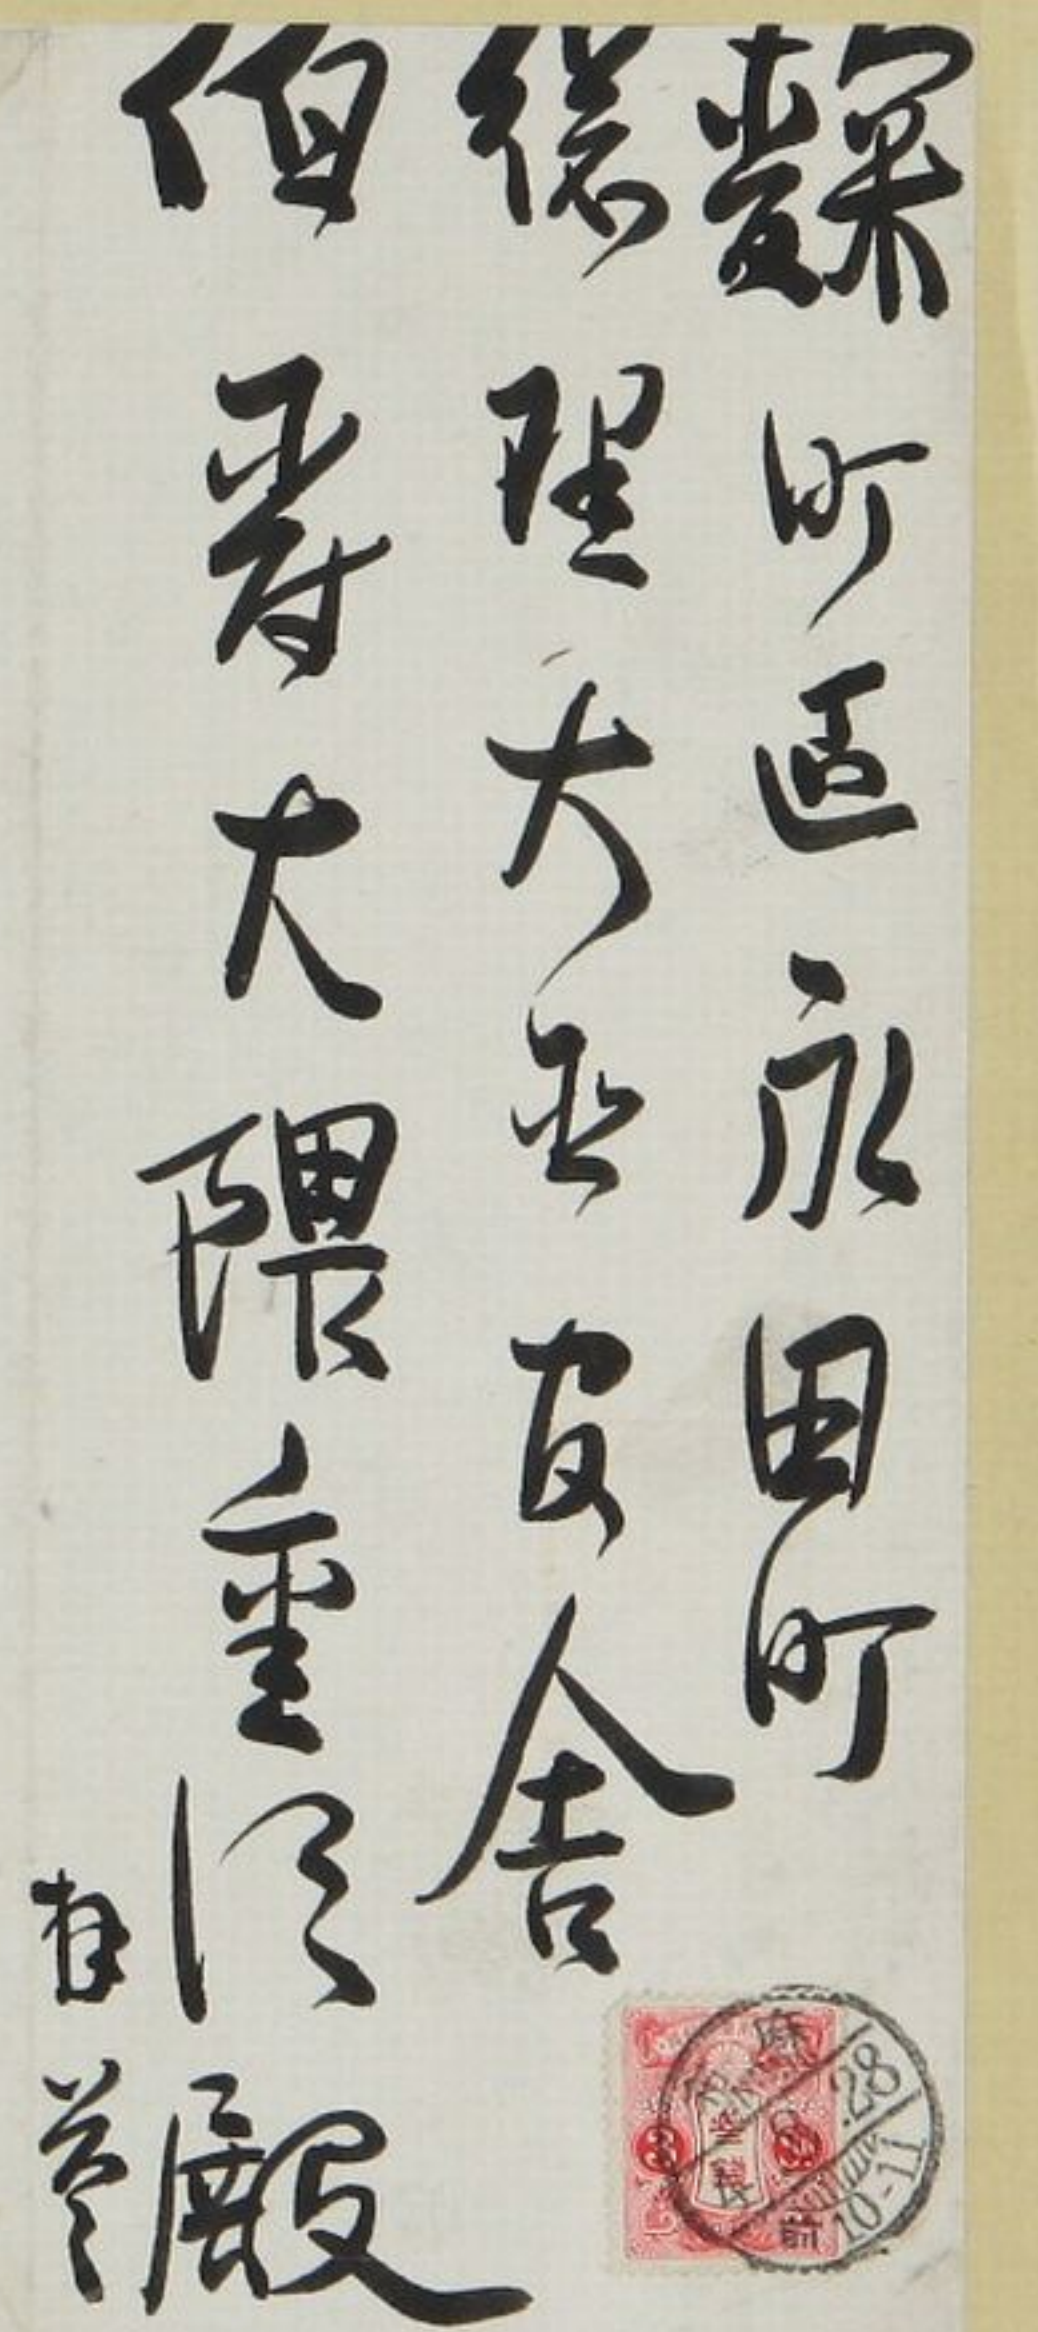 麹町區永田町
總理大臣官舎
伯爵大隈重信殿
親
28
10-11
前